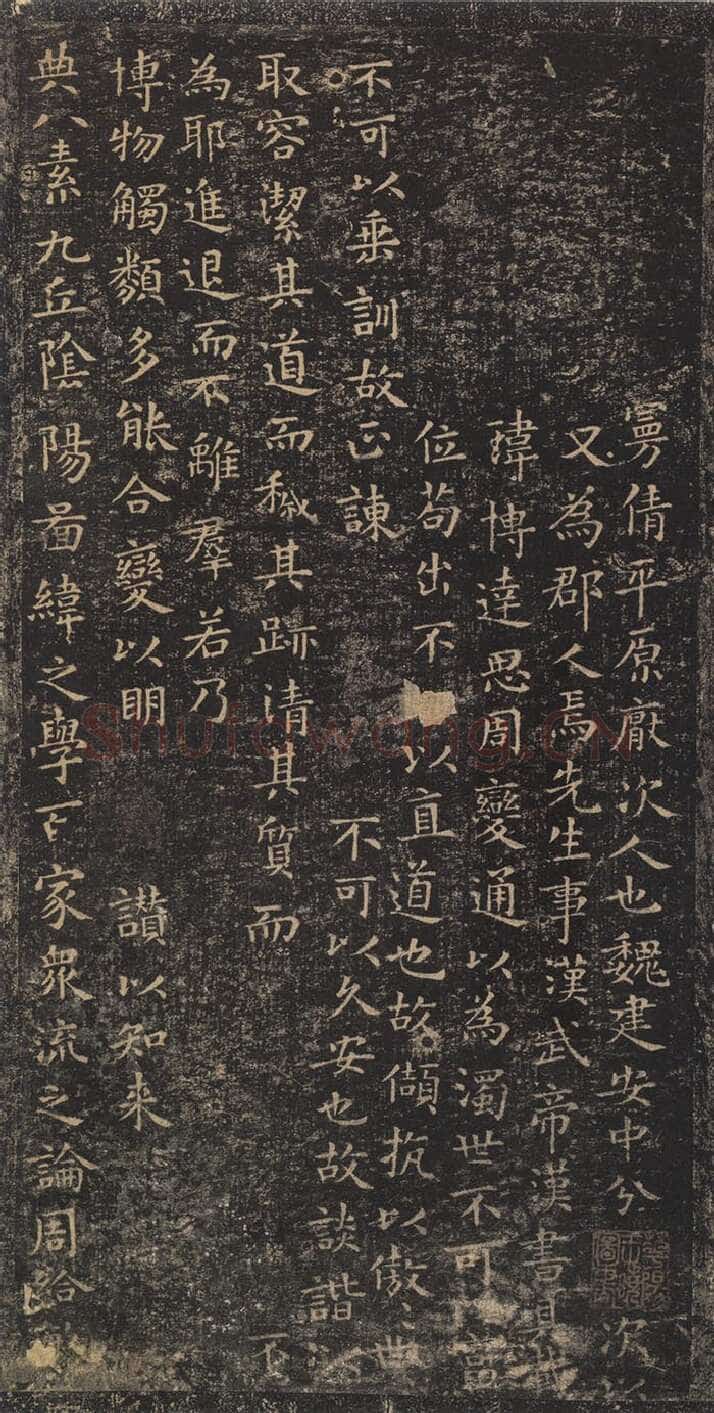 曼倩平原厭次人也魏建安中分 次以
又為郡人焉先生事漢武帝漢書具載
瑋博達思周變通以為濁世不可以富
位苟出不 以直道也故頡抗以傲世
不可以垂訓故正諫 不可以久安也故談諧以
取容潔其道而穢其跡清其質而 不
為耶進退而不離羣若乃
博物觸類多能合變以明 讃以知来
典八素九丘陰陽啚緯之學百家衆流之論周給敏
Shufawang.CN